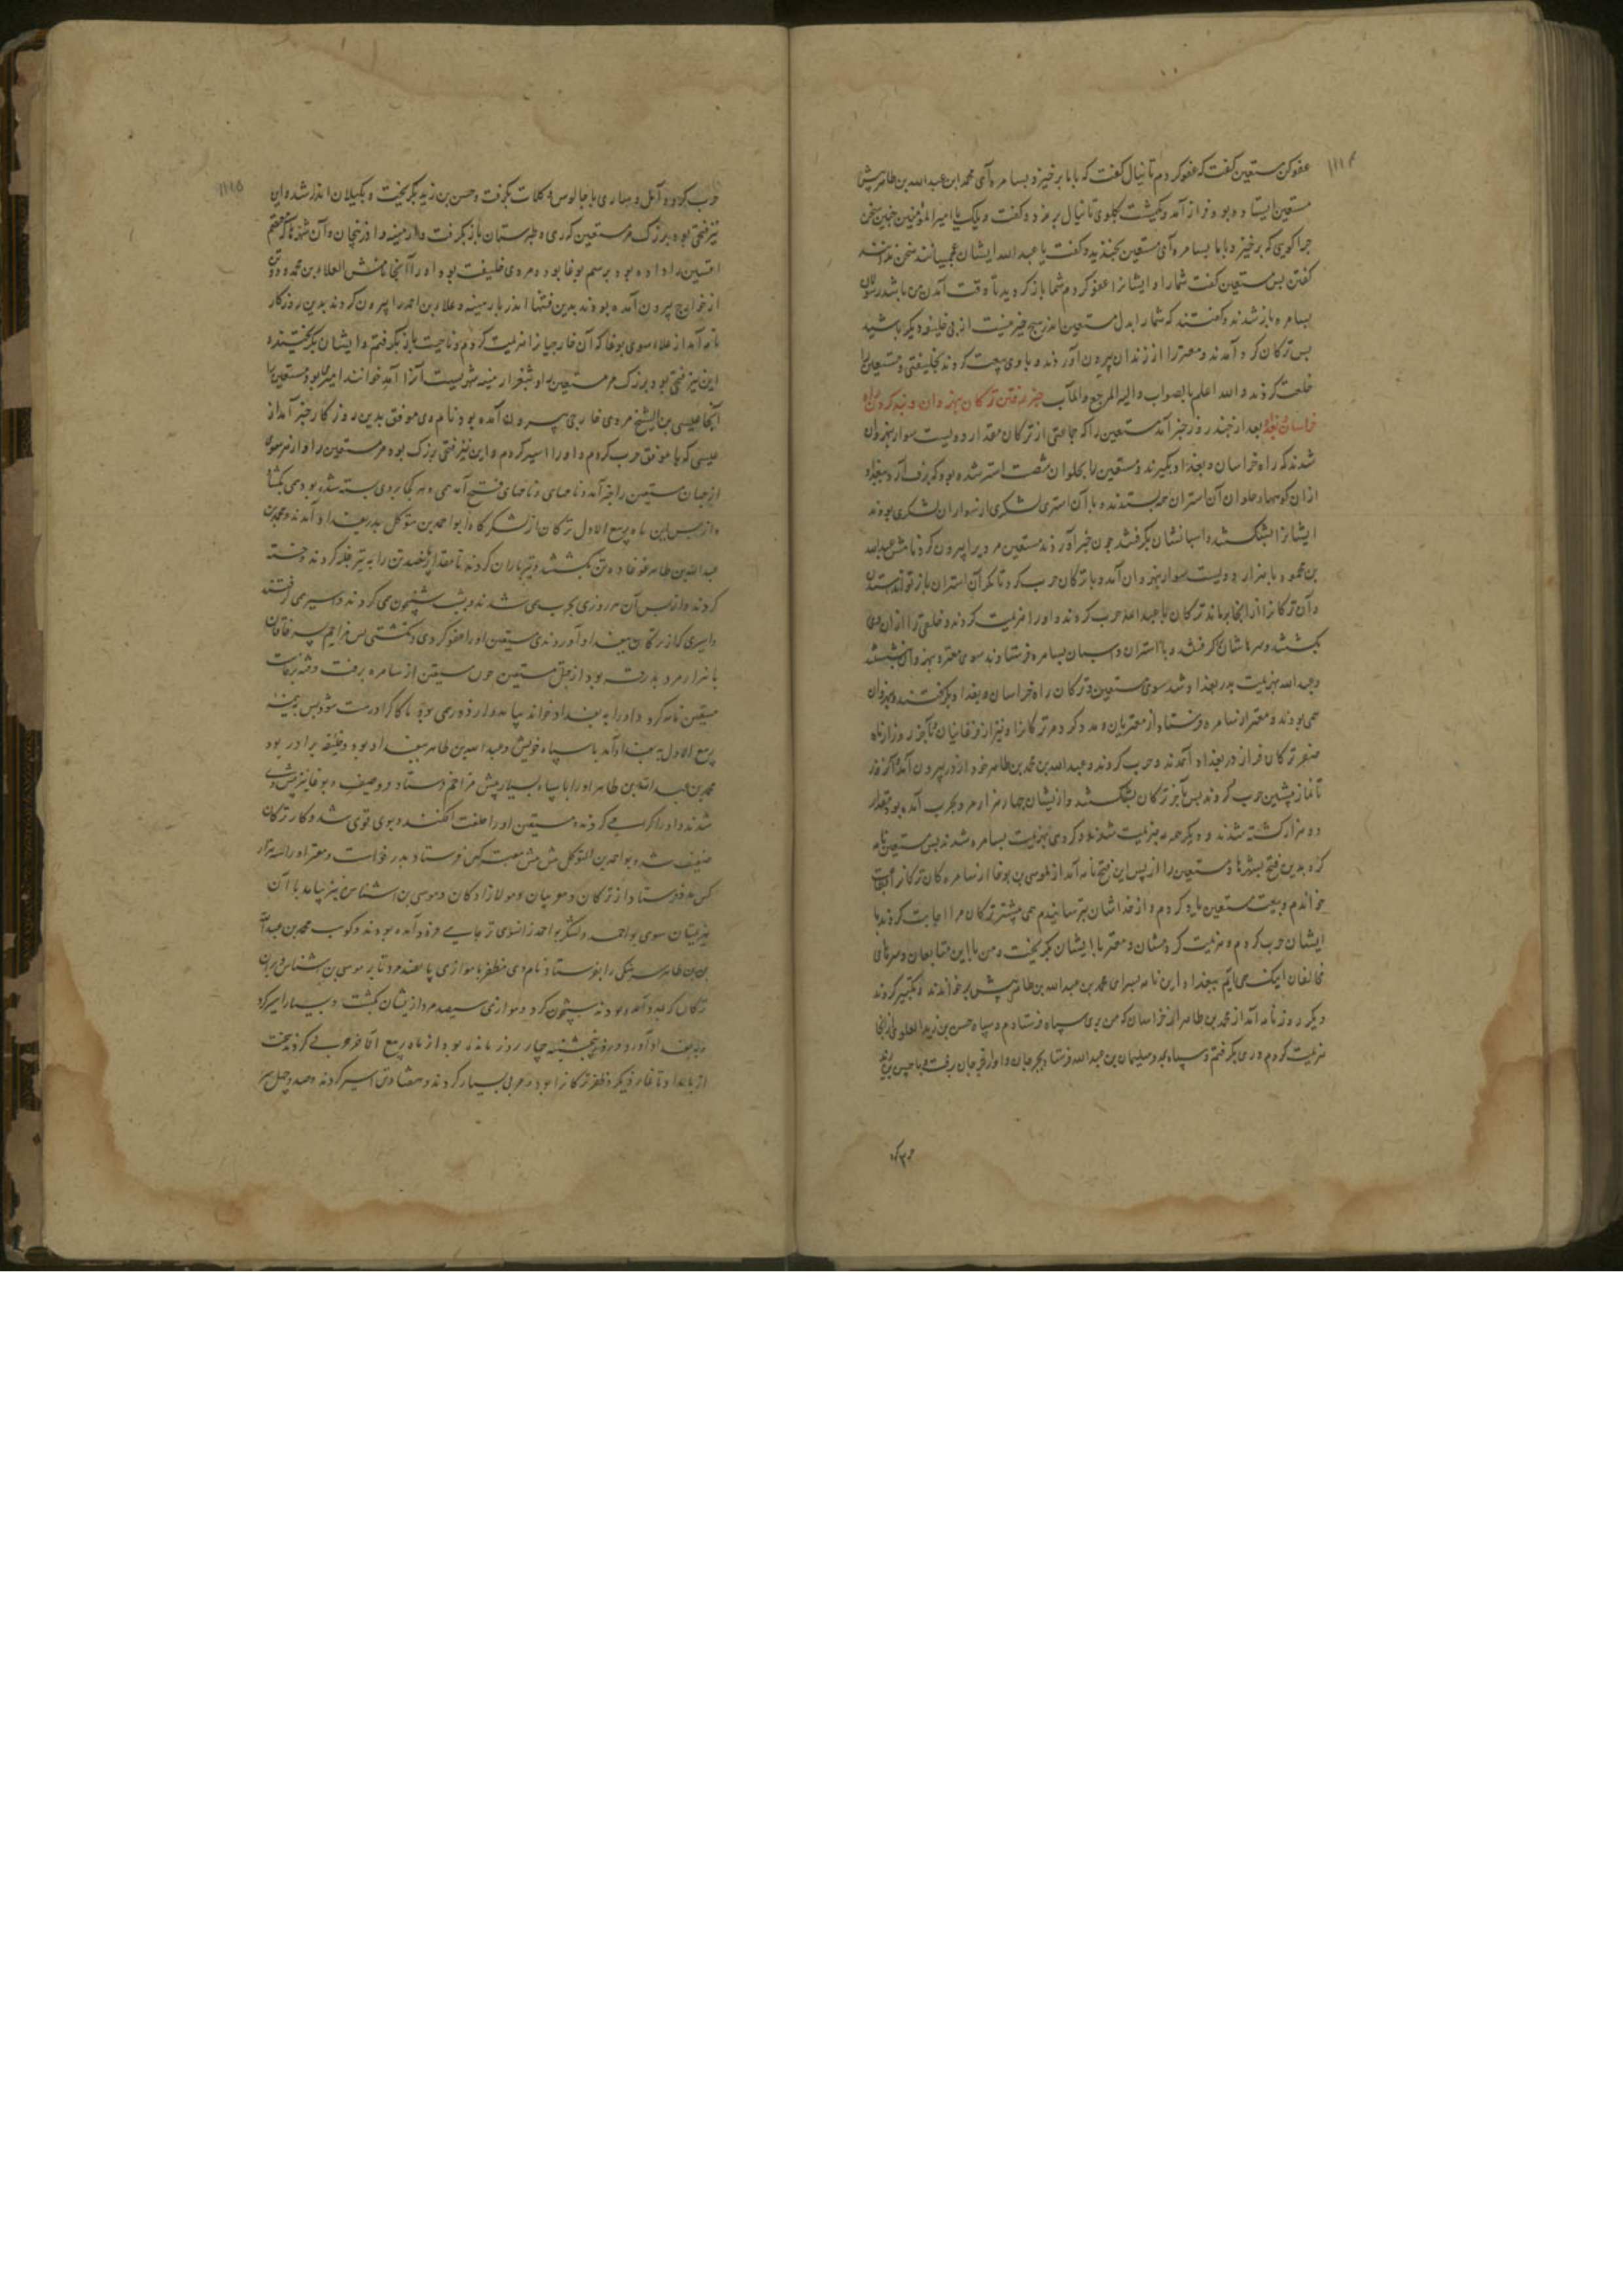 ۱۱۱۴
عفو کن مستعین کفت که عفو کردم تانیال کفت که بابا برخیز و بسامره آی محمد ابن عبدالله بن طاهر پیش
مستعین ایستاده بود فراز آمد و بکلوی تانیال بر زد و کفت ویلک با امیرالمؤمنین چنین سخن
جرا کویی که برخیز و بابا بسامره آی مستعین بخندید و کفت یا عبدالله ایشان عجمیانند سخن ندانند
کفتن بس مستعین کفت شما را و ایشانرا عفو کردم شما باز کردید تا وقت آمدن من باشد رسولان
بسامره باز شدند و کفتند که شما را بدل مستعین اندر هیچ خیر نیست از بی خلیفه دیکر باشید
بس ترکان کرد آمدند و معتز را از زندان بیرون آوردند و با وی بیعت کردند بخلیفتی و مستعین را
خلعت کردند والله اعلم بالصواب والیه المرجع والمآب خبر رفتن ترکان بنهروان و بند کردن راه
خراسان بعد از چند روز خبر آمد مستعین را که جماعتی از ترکان مقدار دویست سوار بنهروان
شدند که راه خراسان و بغداد بکیرند و مستعین را بحلوان شصت استر شده بود که برف آرد ببغداد
از آن کوهها و حلوان آن استران و با آن استری لشکری از سواران لشکری بودند
ایشانرا بشکستند و اسبانشان بکرفتند چون خبر آوردند مستعین مردیرا بیرون کرد نامش عبدالله
بن محمود با هزار و دویست سوار بنهروان آمد و با ترکان حرب کرد تا مکر آن استران باز تواند ستدن
و آن ترکانرا از آنجا براند ترکان با عبدالله حرب کردند و اورا هزیمت کردند و خلقی را از آن وی
بکشتند و سرهاشان کرفتند و با استران و اسبان بسامره فرستادند سوی معتز و بنهروان بنشستند
و عبدالله بهزیمت بدر بغداد شد سوی مستعین و ترکان راه خراسان و بغداد بکرفتند و بنهروان
همی بودند و معتز از سامره فرستاد از مغربیان مدد کرد مر ترکانرا و نیز از فرغانیان تا آخر روز از ماه
صفر ترکان فراز در بغداد آمدند و حرب کردند و عبدالله بن محمد بن طاهر خود از در بیرون آمد
تا نماز بیشین حرب کردند بس بآخر ترکان بشکستند و از ایشان چهار هزار مرد بحرب آمده بود مقدار
دو هزار کشته شدند و دیکر همه بهزیمت شدند و کروهی بهزیمت بسامره شدند بس مستعین نامه
کرد بدین فتح بشهرها و مستعین را از پس این فتح نامه آمد از موسی بن بوغا از سامره کان ترکانرا
خواندم و ببیعت مستعین یاد کردم و از خداشان بترسانیدم همی بیشتر ترکان مرا اجابت کردند با
ایشان حرب کردم و هزیمت کردمشان و معتز با ایشان بکریخت و من با این متابعان و سرهای
مخالفان اینک می آیم ببغداد این نامه بسرای محمد بن عبدالله بن طاهر پیش برخواندند و تکبیر کردند
دیکر روز نامه آمد از محمد بن طاهر از خراسان که من بری سپاه فرستادم و سپاه حسن بن زید العلوی از آنجا
هزیمت کردم و ری بکرفتم و سپاه سلیمان بن عبدالله فرستاد بجرجان و او از جرجان رفت با حسن بن زید
حرب کرد
۱۱۱۵
حرب کرد و آمل و ساری با جالوس و کلات بکرفت و حسن بن زید بکریخت و بکیلان اندر شد و این
نیز فتحی بود بزرک مر مستعین که ری و طبرستان باز بکرفت و ارمینیه و اذربیجان و آن
افشین را داده بود برسم بوغا بود و مردی خلیفت بود او را آنجا نامش العلاء بن محمد و
از خوارج بیرون آمده بودند بدین فتنها اندر بارمینیه و علاء بن احمد را بیرون کردند بدین روزکار
نامه آمد از علاء سوی بوغا که آن خارجیانرا هزیمت کردم و ناحیت باز بکرفتم و ایشان بکریختند و
این نیز فتحی بود بزرک مر مستعین را و بثغر ارمینیه شهریست آنرا آمد خوانند امیر بود مستعین را
آنجا عیسی بن الشیخ مردی خارجی بیرون آمده بود نام وی موفق بدین روزکار خبر آمد از
عیسی که با موفق حرب کردم و او را اسیر کردم و این نیز فتحی بزرک بود مر مستعین را و از هر سوی
از جهان مستعین را خبر آمد و نامهای فتح آمد همی و هر کجا بر وی بسته شده بود همی بکشاد
و از پس این ماه ربیع الاول ترکان از لشکرکاه ابو احمد بن متوکل بدر بغداد آمدند و محمد بن
عبدالله بن طاهر غوغا ده تن بکشتند و تیرباران کردند تا مقدار پانصد تن را به تیر خسته
کردند و از پس آن هر روزی بحرب همی شدند و بشب شبیخون می کردند و اسیر می کرفتند
و اسیری که از ترکان ببغداد آوردندی مستعین او را عفو کردی و نکشتی بس مزاحم پسر خاقان
با هزار مرد بدرقه بود از جهت مستعین چون مستعین از سامره برفت
مستعین نامه کرد و او را به بغداد خواند بیامد تا کارها درست شود بس
ربیع الاول به بغداد آمد با سپاه خویش و عبدالله بن طاهر ببغداد بود و خلیفه برادر بود
محمد بن عبدالله بن طاهر او را با سپاه بسیار پیش مزاحم فرستاد و وصیف و بوغا نیز پیش وی
شدند و او را کرامی کردند و مستعین او را خلعت افکند و بوی قوی شد و کار ترکان
ضعیف شد بو احمد بن المتوکل پیش کس فرستاد مدد خواست و معتز او را سه هزار
کس مدد فرستاد از ترکان و مغربیان و مولازادکان و موسی بن اشناس نیز بیامد با آن
سوی بو احمد و لشکر بو احمد فرود آمده بودند محمد بن عبدالله
بن طاهر سرهنکی را بفرستاد نام وی مظفر با موازی پانصد مرد تا بر موسی بن اشناس و بر آن
ترکان که آمده بودند شبیخون کرد و موازی سیصد مرد از ایشان بکشت و بسیار اسیر کرد
و به بغداد آورد و روز پنجشنبه چهار روز مانده بود از ماه ربیع الآخر حربی کردند سخت
از بامداد تا نماز دیکر و ظفر ترکانرا بود و حربی بسیار کردند و هفتاد تن اسیر کردند و صد و چهل سر